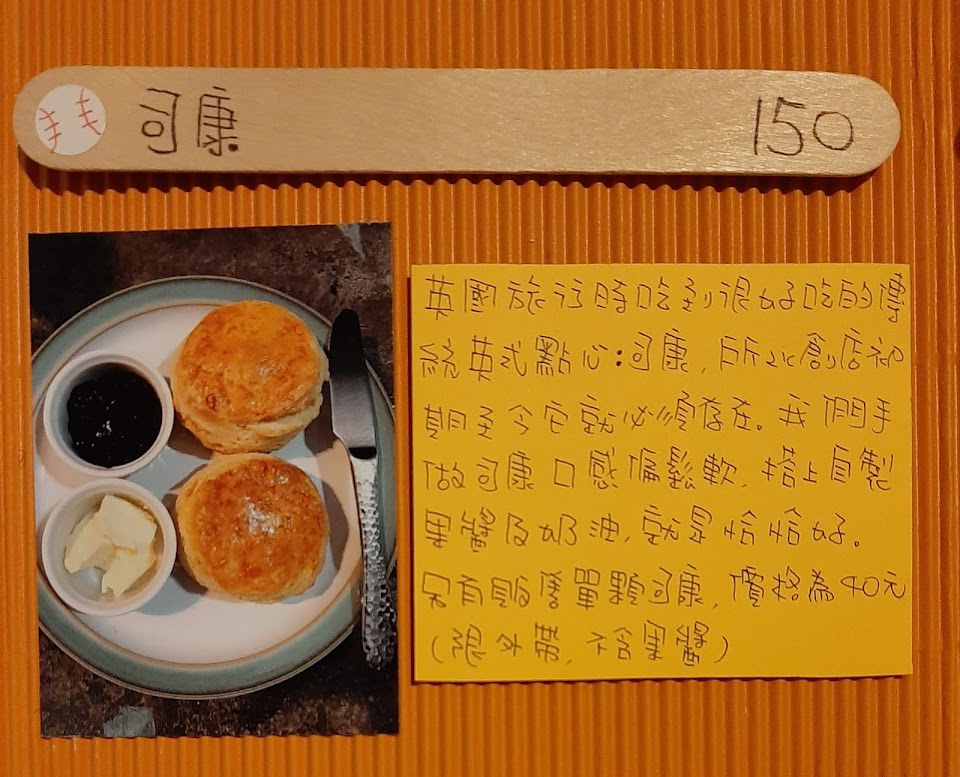 司康 150
英國旅行時吃到很好吃的傳
統英式點心:司康,所以創店初
期至今它就必須存在。我們手
做司康口感偏鬆軟,搭上自製
果醬及奶油,就是恰恰好。
另有販售單顆司康,價格為40元
(限外帶,不含果醬)